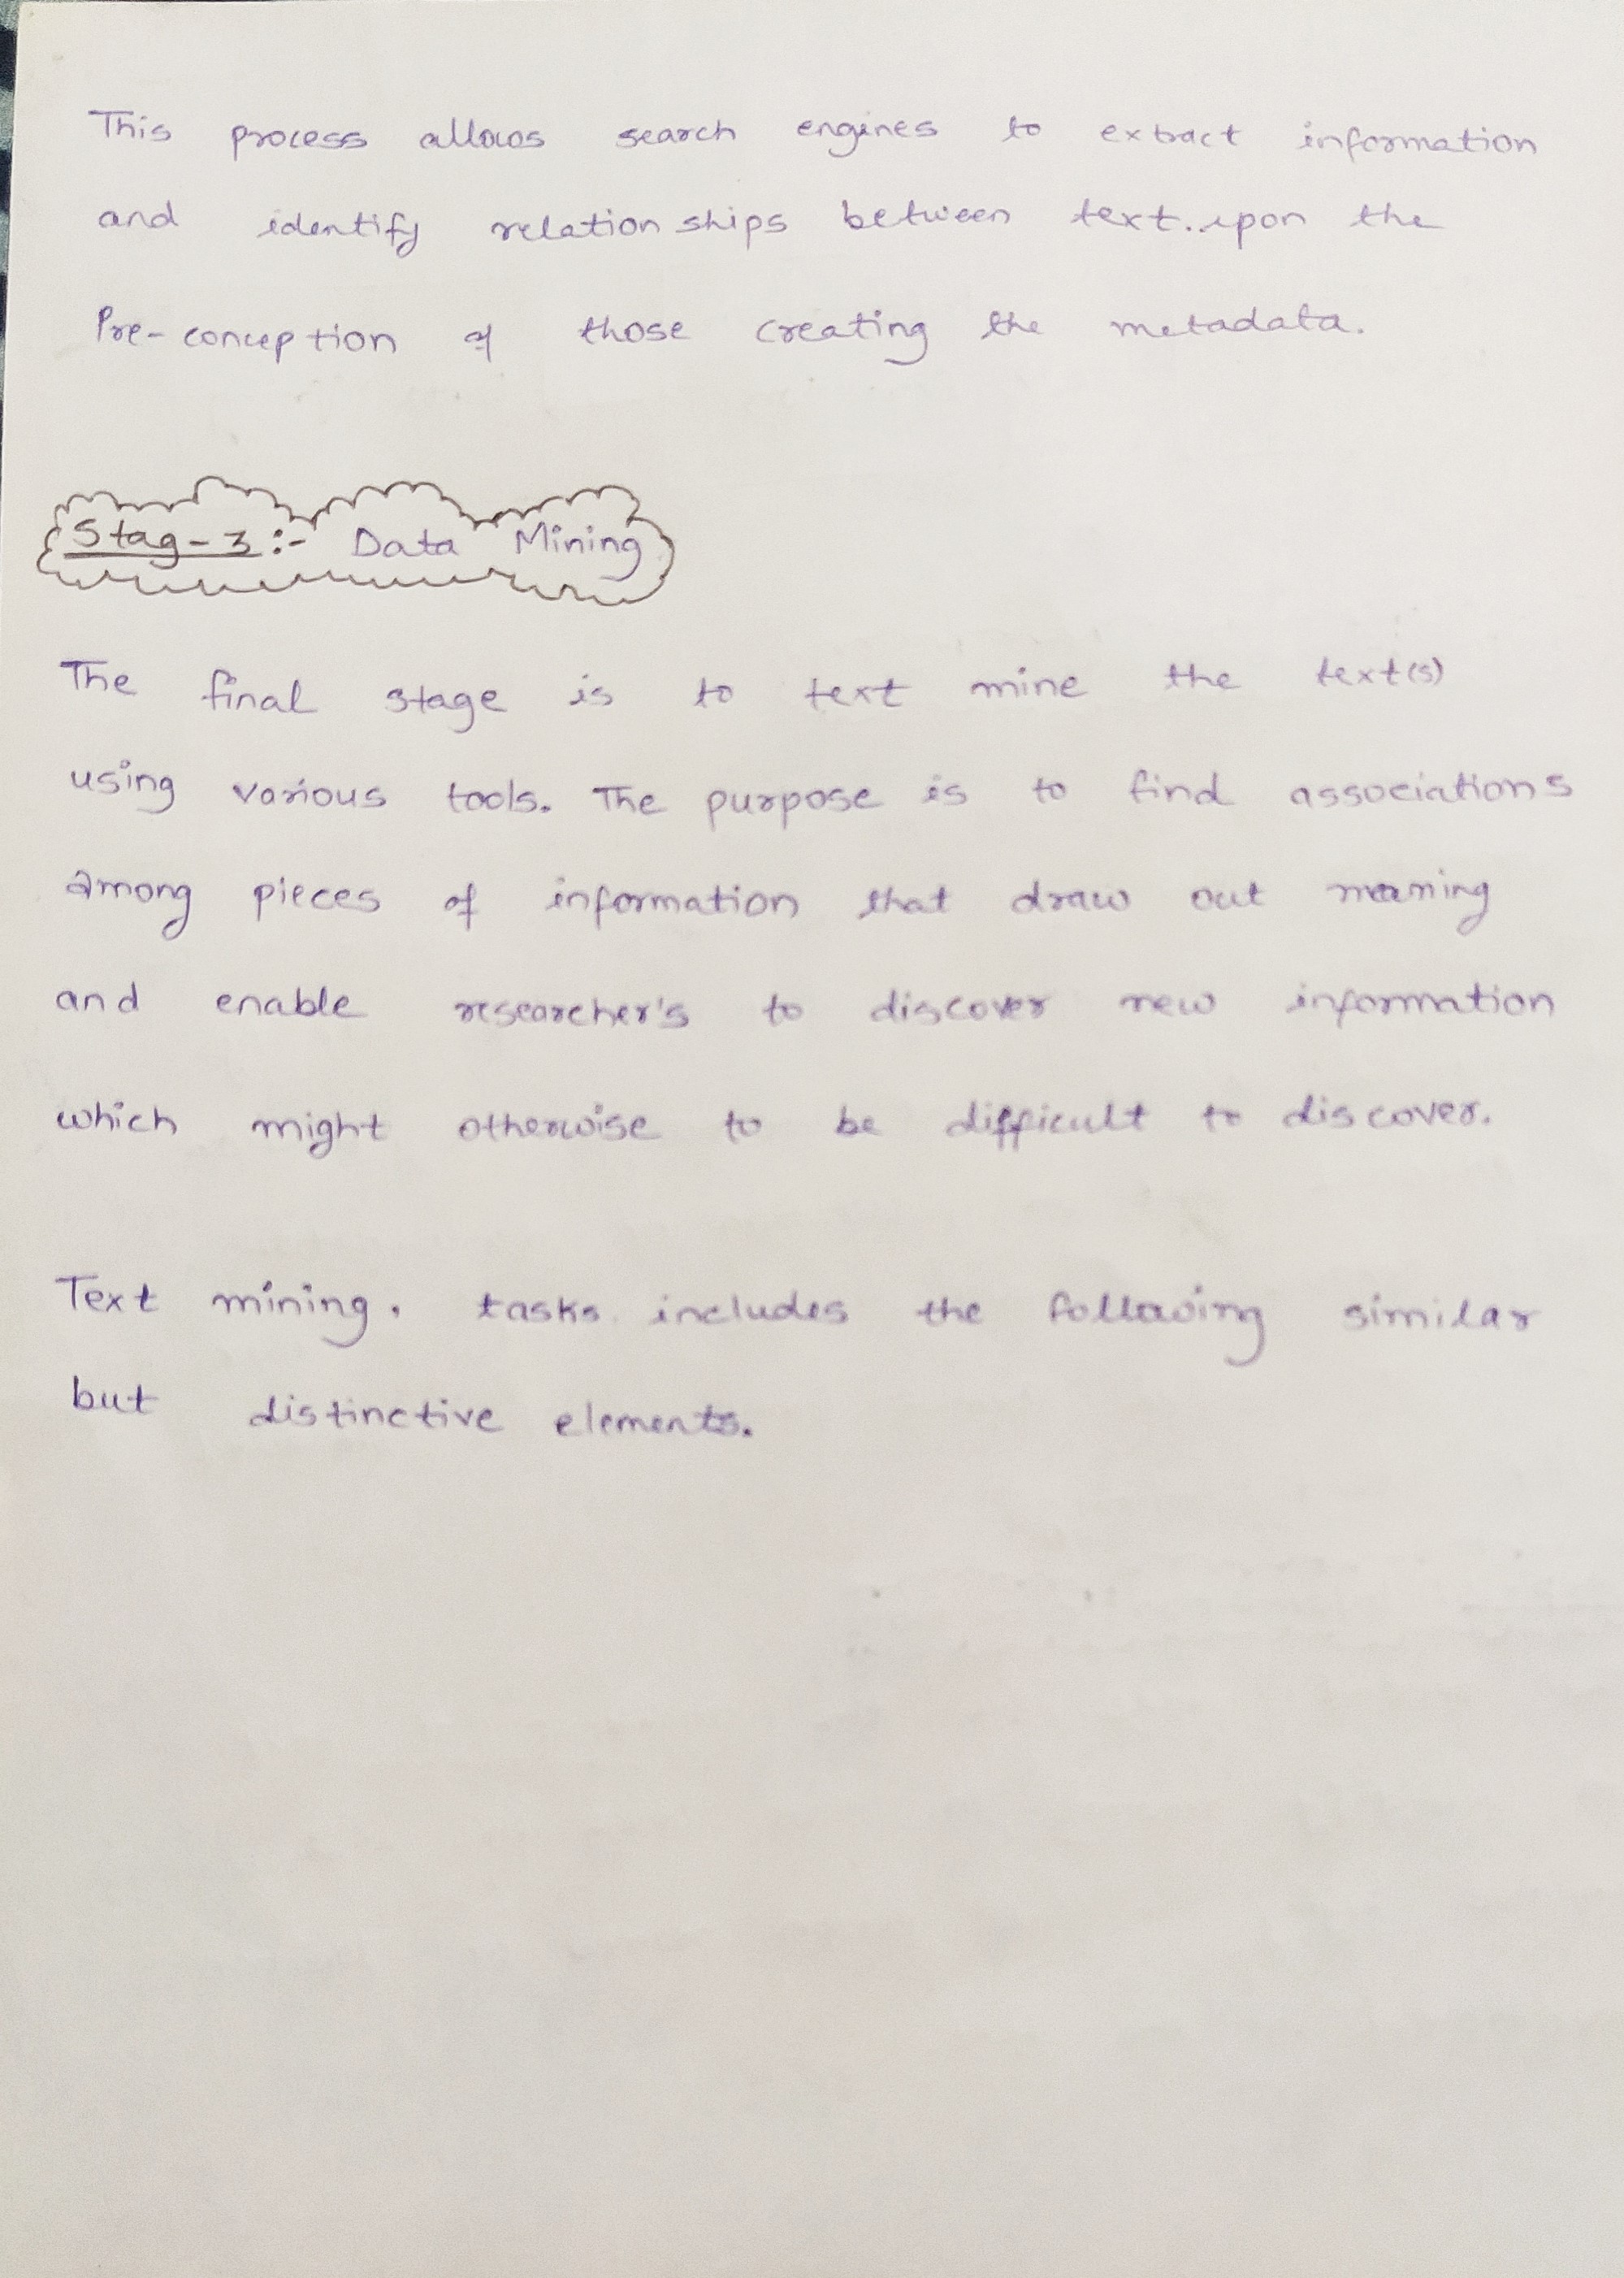 This process allows search engines to extract information
and identify relationships between text. upon the
Pre-conception of those creating the metadata.
Stag-3:- Data Mining
The final stage is to text mine the text(s)
using various tools. The purpose is to find associations
among pieces of information that draw out meaning
and enable researcher's to discover new information
which might otherwise to be difficult to discover.
Text mining. tasks includes the following similar
but distinctive elements.